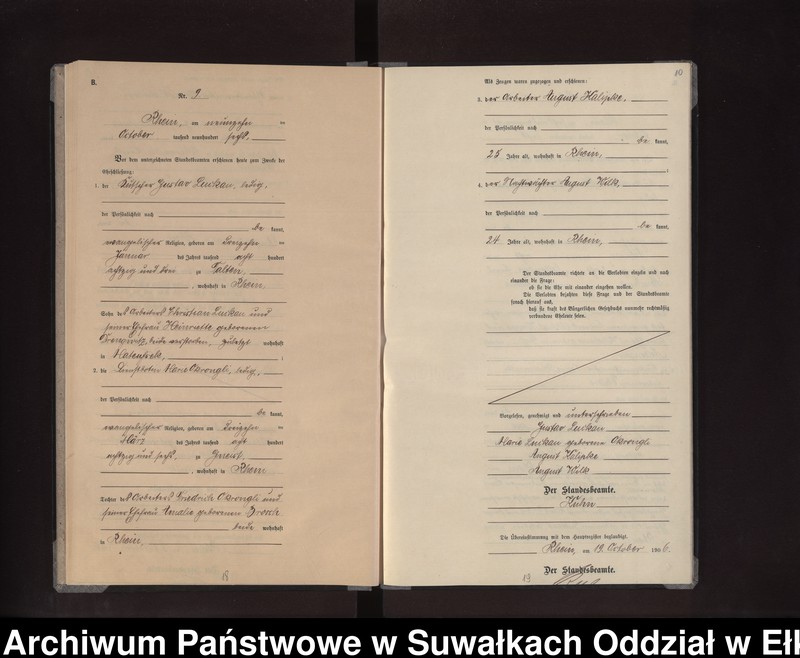 B.
Nr. 9
Rhein, am neunzehn ten
October tausend neunhundert sechs.
Vor dem unterzeichneten Standesbeamten erschienen heute zum Zwecke der
Eheschließung:
1. der Kutscher Gustav Luckau, ledig,
der Persönlichkeit nach
be kannt,
evangelischer Religion, geboren am dreizehn ten
Januar des Jahres tausend acht hundert
achtzig und drei zu Salten,
, wohnhaft in Rhein
Sohn des Arbeiters Christian Luckau und
seiner Ehefrau Henriette geborenen
beide verstorben, zuletzt wohnhaft
in
2. die Dienstbotin Marie Okrongli, ledig,
der Persönlichkeit nach
be kannt,
evangelischer Religion, geboren am dreizehn ten
März des Jahres tausend acht hundert
achtzig und sechs, zu
, wohnhaft in Rhein
Tochter des Arbeiters Friedrich Okrongli und
seiner Ehefrau Amalie geborenen
beide wohnhaft
in Rhein.
10
Als Zeugen waren zugezogen und erschienen:
3. der Arbeiter August Kalipke,
der Persönlichkeit nach
be kannt,
25 Jahre alt, wohnhaft in Rhein,
4. der Nachtwächter August Wilk
der Persönlichkeit nach
be kannt,
24 Jahre alt, wohnhaft in Rhein,
Der Standesbeamte richtete an die Verlobten einzeln und nach
einander die Frage:
ob sie die Ehe mit einander eingehen wollen.
Die Verlobten bejahten diese Frage und der Standesbeamte
sprach hierauf aus,
daß sie kraft des Bürgerlichen Gesetzbuchs nunmehr rechtmäßig
verbundene Eheleute seien.
Vorgelesen, genehmigt und unterschrieben
Gustav Luckau
Marie Luckau geborene Okrongli
August Kalipke
August Wilk
Der Standesbeamte.
Kuhn
Die Übereinstimmung mit dem Hauptregister beglaubigt.
Rhein, am 19. October 1906.
Der Standesbeamte.
19
Archiwum Państwowe w Suwałkach Oddział w Ełk